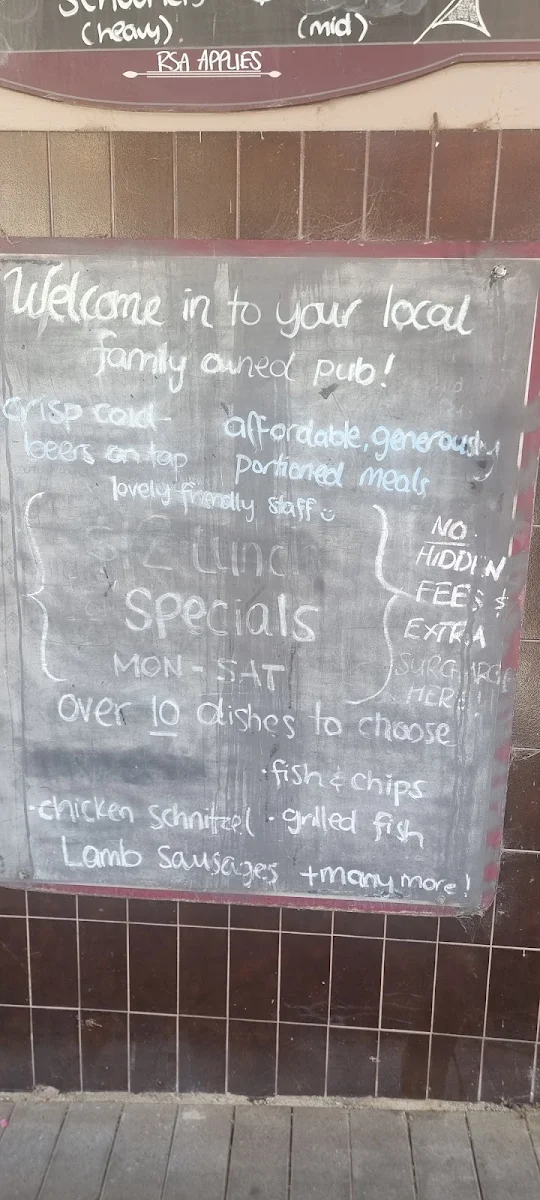 schooners
(heavy).
(mid)
RSA APPLIES
Welcome in to your local
family owned pub!
crisp cold
beers on tap
affordable, generously
portioned meals
lovely friendly staff
Lunch
Specials
MON - SAT
NO
HIDDEN
FEES &
EXTRA
SURCHARGE
HERE!
over 10 dishes to choose
• fish & chips
• chicken schnitzel • grilled fish
Lamb sausages +many more!